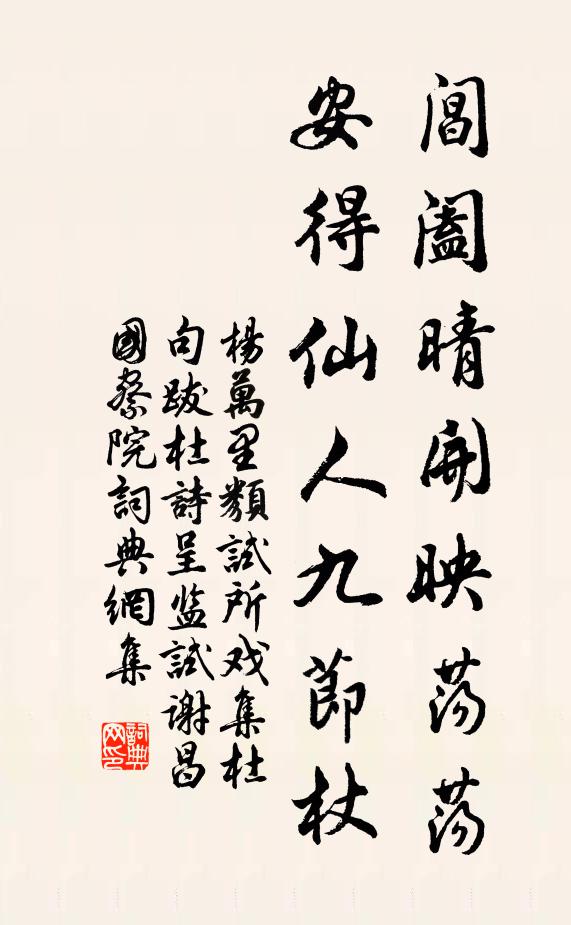 閶闔晴開映蕩蕩
安得仙人九節杖
楊萬里類試所戏集杜
句跋杜詩呈监試谢昌
國察院詞典網集
詞典
网印